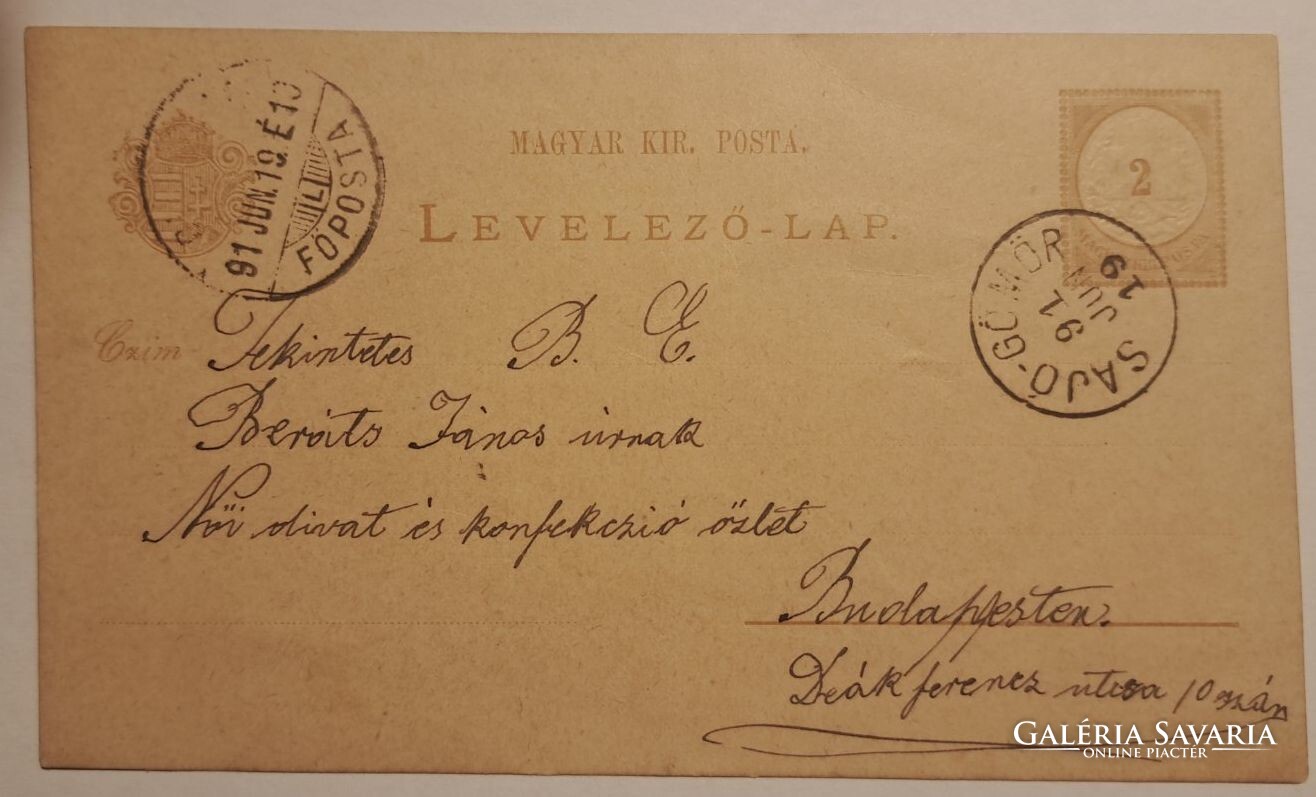 MAGYAR KIR. POSTA.
LEVELEZŐ-LAP.
2
91 JUN. 19 É 10
FŐPOSTA
SAJÓ-GÖMÖR
91
JUN
19
Czim
Tekintetes B. E.
Beráts János úrnak
Női divat és konfekczió őzlet
Budapesten.
Deák ferencz utcza 10 szán
GALÉRIA SAVARIA
ONLINE PIACTÉR